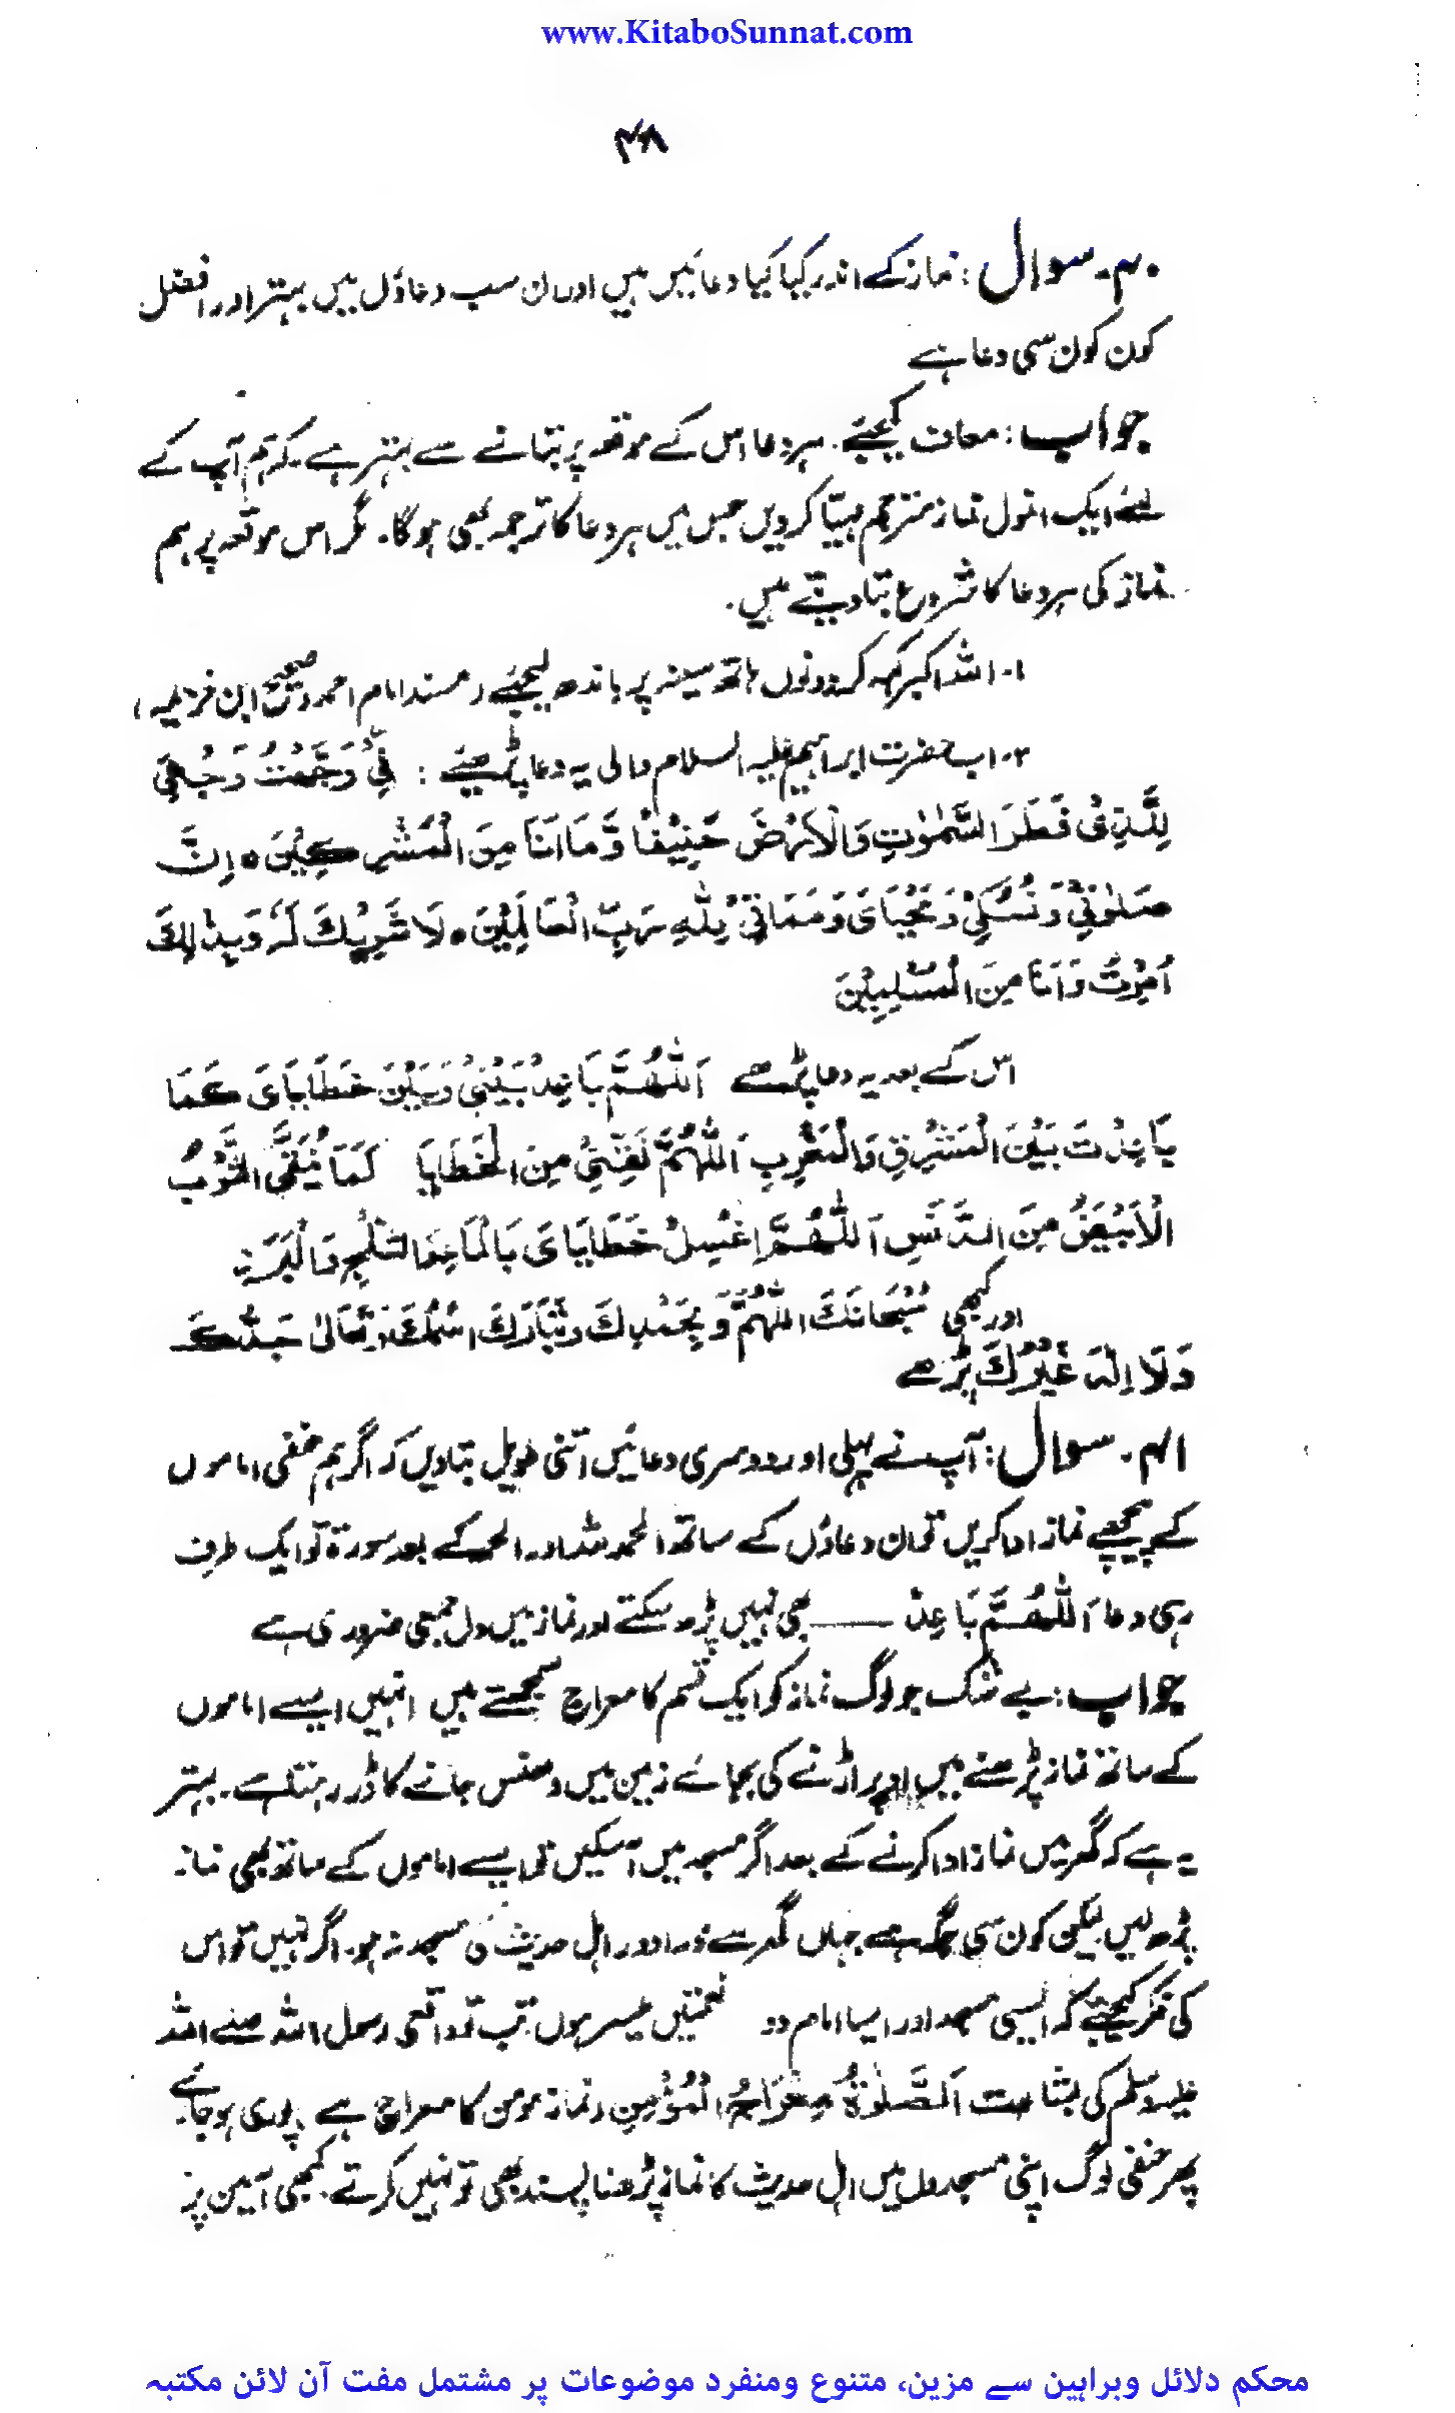 www.KitaboSunnat.com
۴۸
۴۰۔ سوال : نماز کے اندر کیا کیا دعائیں ہیں اور ان سب دعاؤں میں بہتر اور افضل
کون کون سی دعا ہے
جواب : معاف کیجیئے ۔ ہر دعا اس کے موقعہ پر بتانے سے بہتر ہے کہ ہم آپ کے
لئے ایک انمول نماز مترجم مہیا کر دیں جس میں ہر دعا کا ترجمہ بھی ہوگا۔ مگر اس موقعہ پر ہم
نماز کی ہر دعا کا شروع بتا دیتے ہیں۔
۱۔ اللہ اکبر کہہ کر دونوں ہاتھ سینہ پر باندھ لیجیئے (مسند امام احمد و صحیح ابن خزیمہ)
۲۔ اب حضرت ابراہیم علیہ السلام والی یہ دعا پڑھیئے : اِنِّیْ وَجَّهْتُ وَجْهِیَ
لِلَّذِیْ فَطَرَ السَّمٰوٰتِ وَالْاَرْضَ حَنِیْفًا وَّمَا اَنَا مِنَ الْمُشْرِکِیْنَ ٥ اِنَّ
صَلٰوتِیْ وَنُسُکِیْ وَمَحْیَایَ وَمَمَاتِیْ لِلّٰهِ رَبِّ الْعَالَمِیْنَ ٥ لَا شَرِیْكَ لَهٗ وَبِذٰلِكَ
اُمِرْتُ وَاَنَا مِنَ الْمُسْلِمِیْنَ
اس کے بعد یہ دعا پڑھے اَللّٰهُمَّ بَاعِدْ بَیْنِیْ وَبَیْنَ خَطَایَایَ کَمَا
بَاعَدْتَ بَیْنَ الْمَشْرِقِ وَالْمَغْرِبِ اَللّٰهُمَّ نَقِّنِیْ مِنَ الْخَطَایَا کَمَا یُنَقَّی الثَّوْبُ
الْاَبْیَضُ مِنَ الدَّنَسِ اَللّٰهُمَّ اغْسِلْ خَطَایَایَ بِالْمَاءِ وَالثَّلْجِ وَالْبَرَدِ
اور کبھی سُبْحَانَكَ اللّٰهُمَّ وَبِحَمْدِكَ وَتَبَارَكَ اسْمُكَ وَتَعَالٰی جَدُّكَ
وَلَا اِلٰهَ غَیْرُكَ پڑھے
۴۱۔ سوال : آپ نے پہلی اور دوسری دعائیں اتنی طویل بتادیں کہ اگر ہم حنفی اماموں
کے پیچھے نماز ادا کریں تو ان دعاؤں کے ساتھ الحمد للہ اور الحمد کے بعد سورۃ تو ایک طرف
رہی دعا اَللّٰهُمَّ بَاعِدْ —— بھی نہیں پڑھ سکتے اور نماز میں دل جمعی ضروری ہے
جواب : بے شک جو لوگ نماز کو ایک قسم کا معراج سمجھتے ہیں انہیں ایسے اماموں
کے ساتھ نماز پڑھنے میں اوپر اڑنے کی بجائے زمین میں دھنس جانے کا ڈر رہتا ہے۔ بہتر
یہ ہے کہ گھر میں نماز ادا کرنے کے بعد اگر مسجد میں آ سکیں تو ایسے اماموں کے ساتھ بھی نماز
پڑھ لیں لیکن کون سی جگہ ہے جہاں گھر سے ذرا دور اہل حدیث کی مسجد نہ ہو۔ اگر نہیں تو اس
کی فکر کیجیئے کہ ایسی مسجد اور ایسا امام دو نعمتیں میسر ہوں تب تو واقعی رسول اللہ صلے اللہ
علیہ وسلم کی بشارت اَلصَّلٰوةُ مِعْرَاجُ الْمُؤْمِنِ (نماز مومن کا معراج ہے) پوری ہو جائے
پھر حنفی لوگ اپنی مسجدوں میں اہل حدیث کا نماز پڑھنا پسند بھی تو نہیں کرتے کبھی آمین پر
محکم دلائل وبراہین سے مزین، متنوع ومنفرد موضوعات پر مشتمل مفت آن لائن مکتبہ